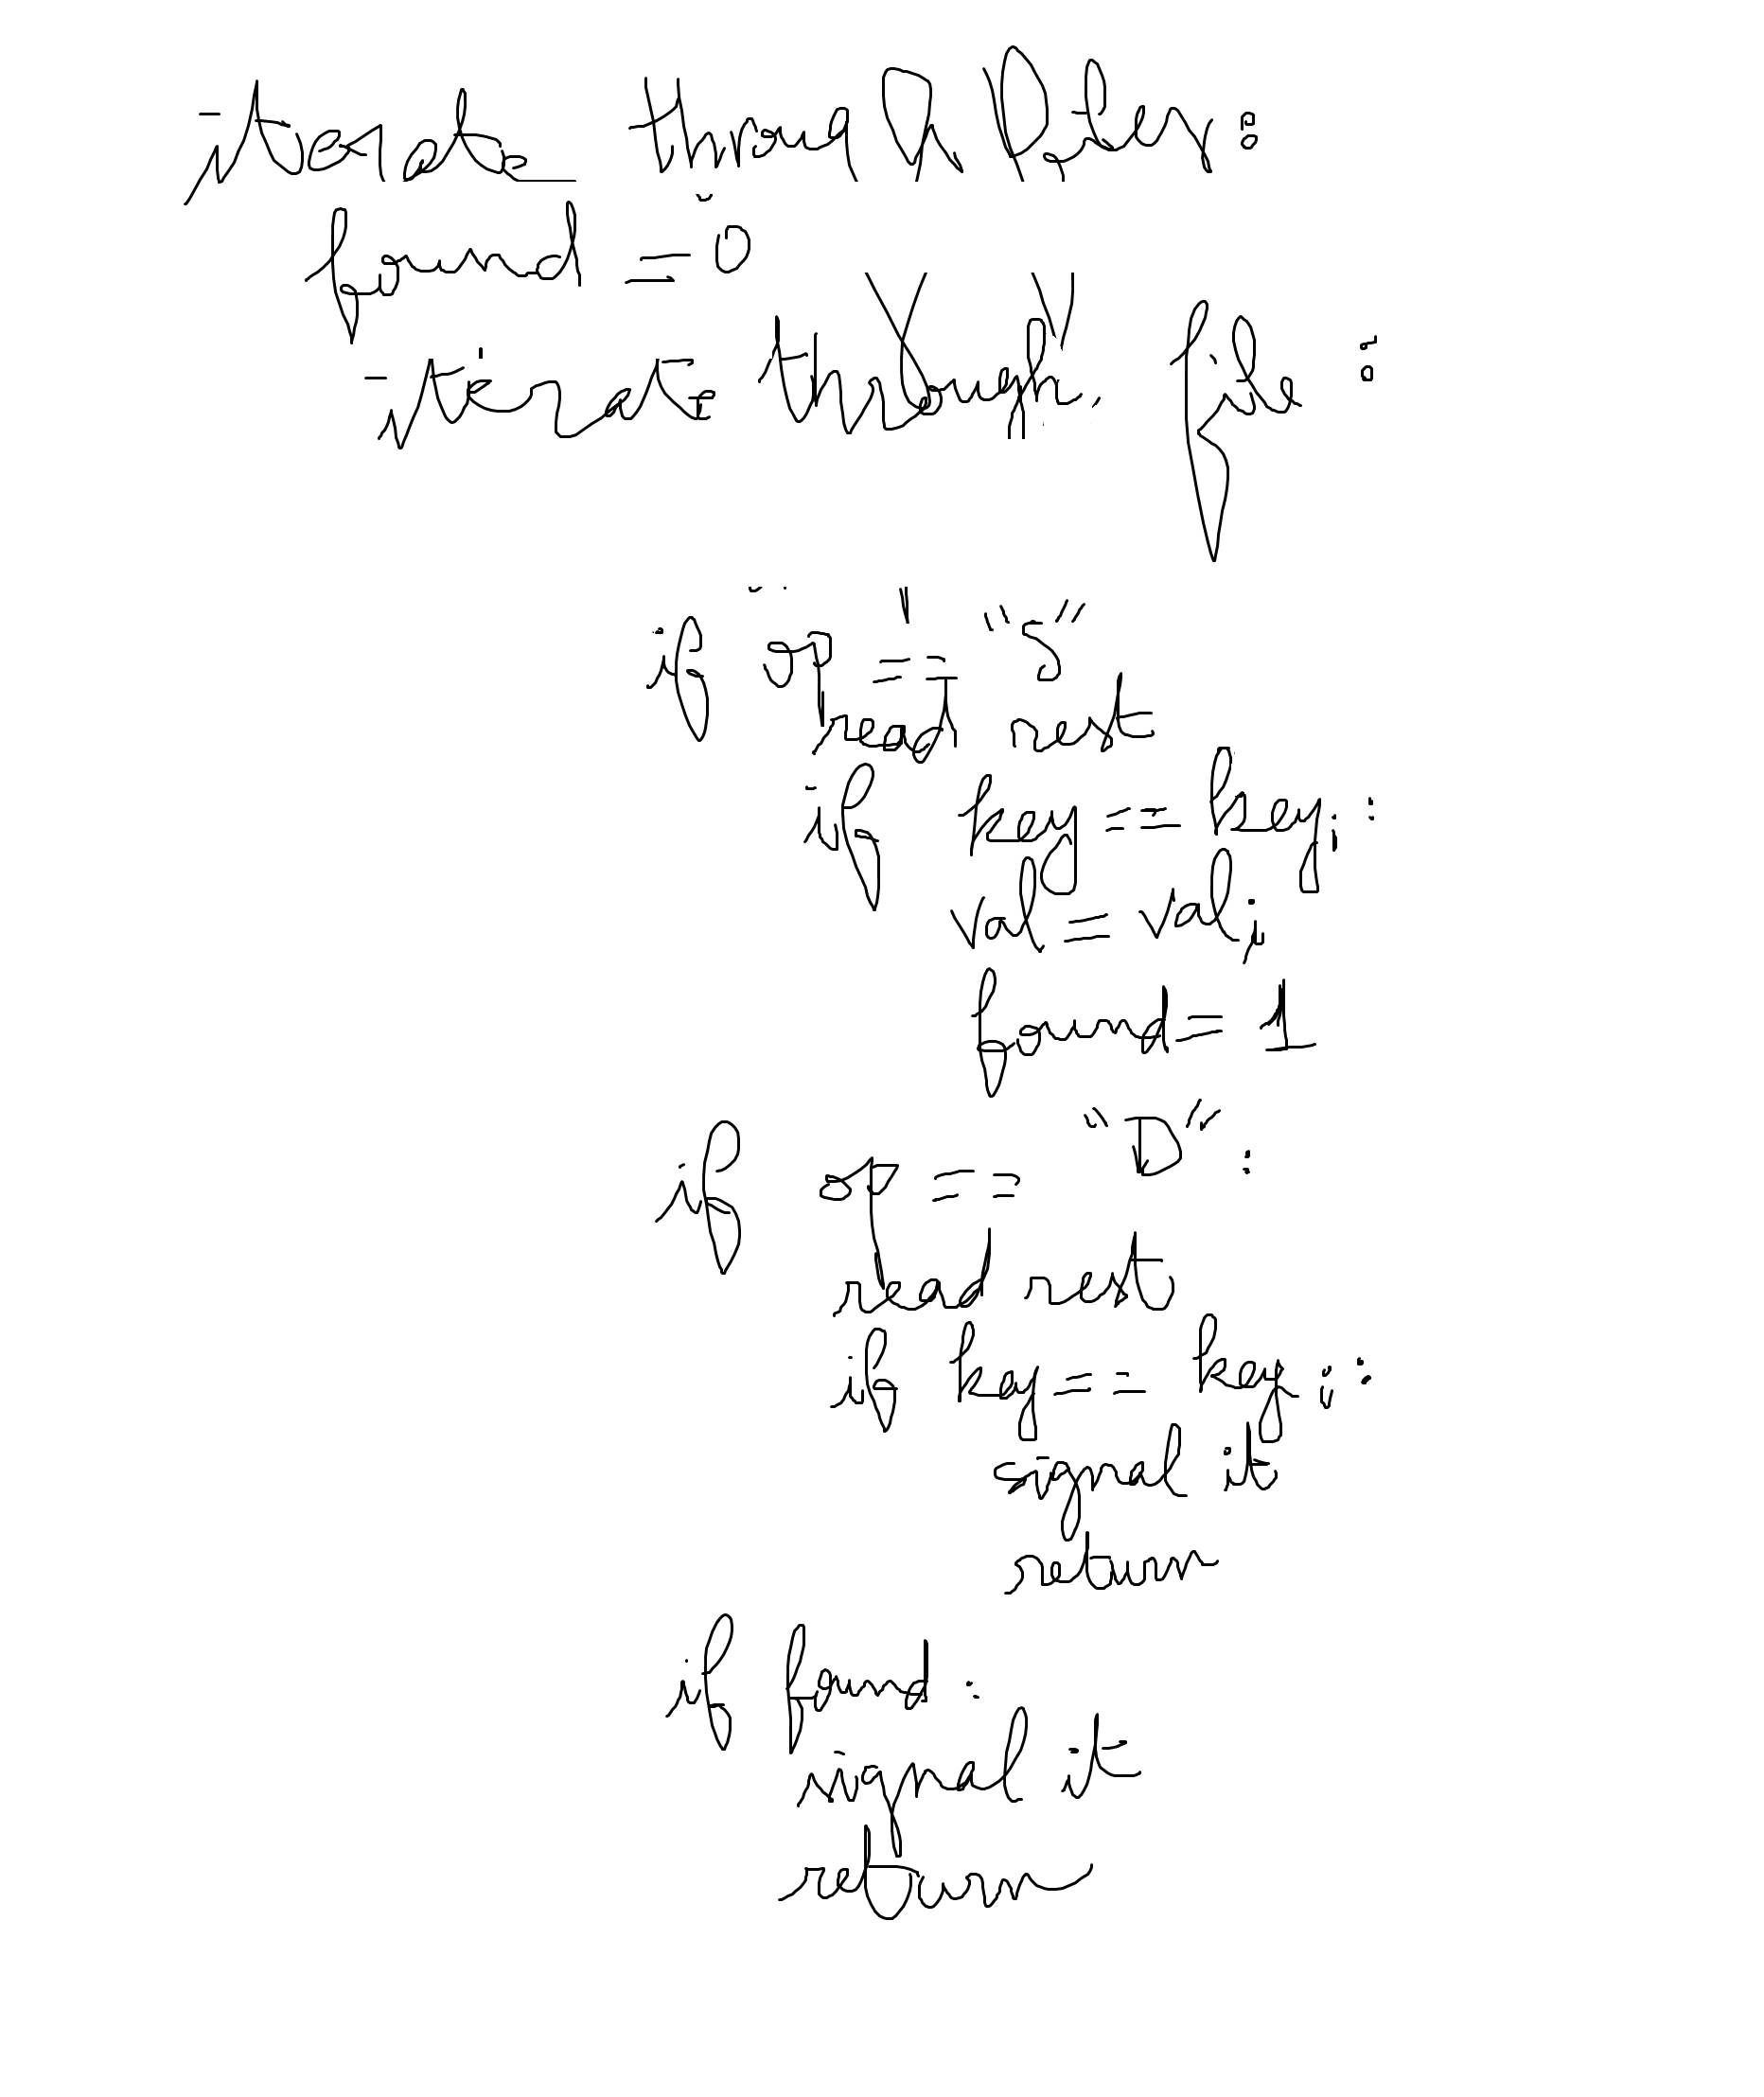 iterate through files:
found = 0
iterate through file :
if op == "S"
read rest
if key == key i :
val = val i
found = 1
if op == "D" :
read rest
if key == key i :
signal it
return
if found :
signal it
return